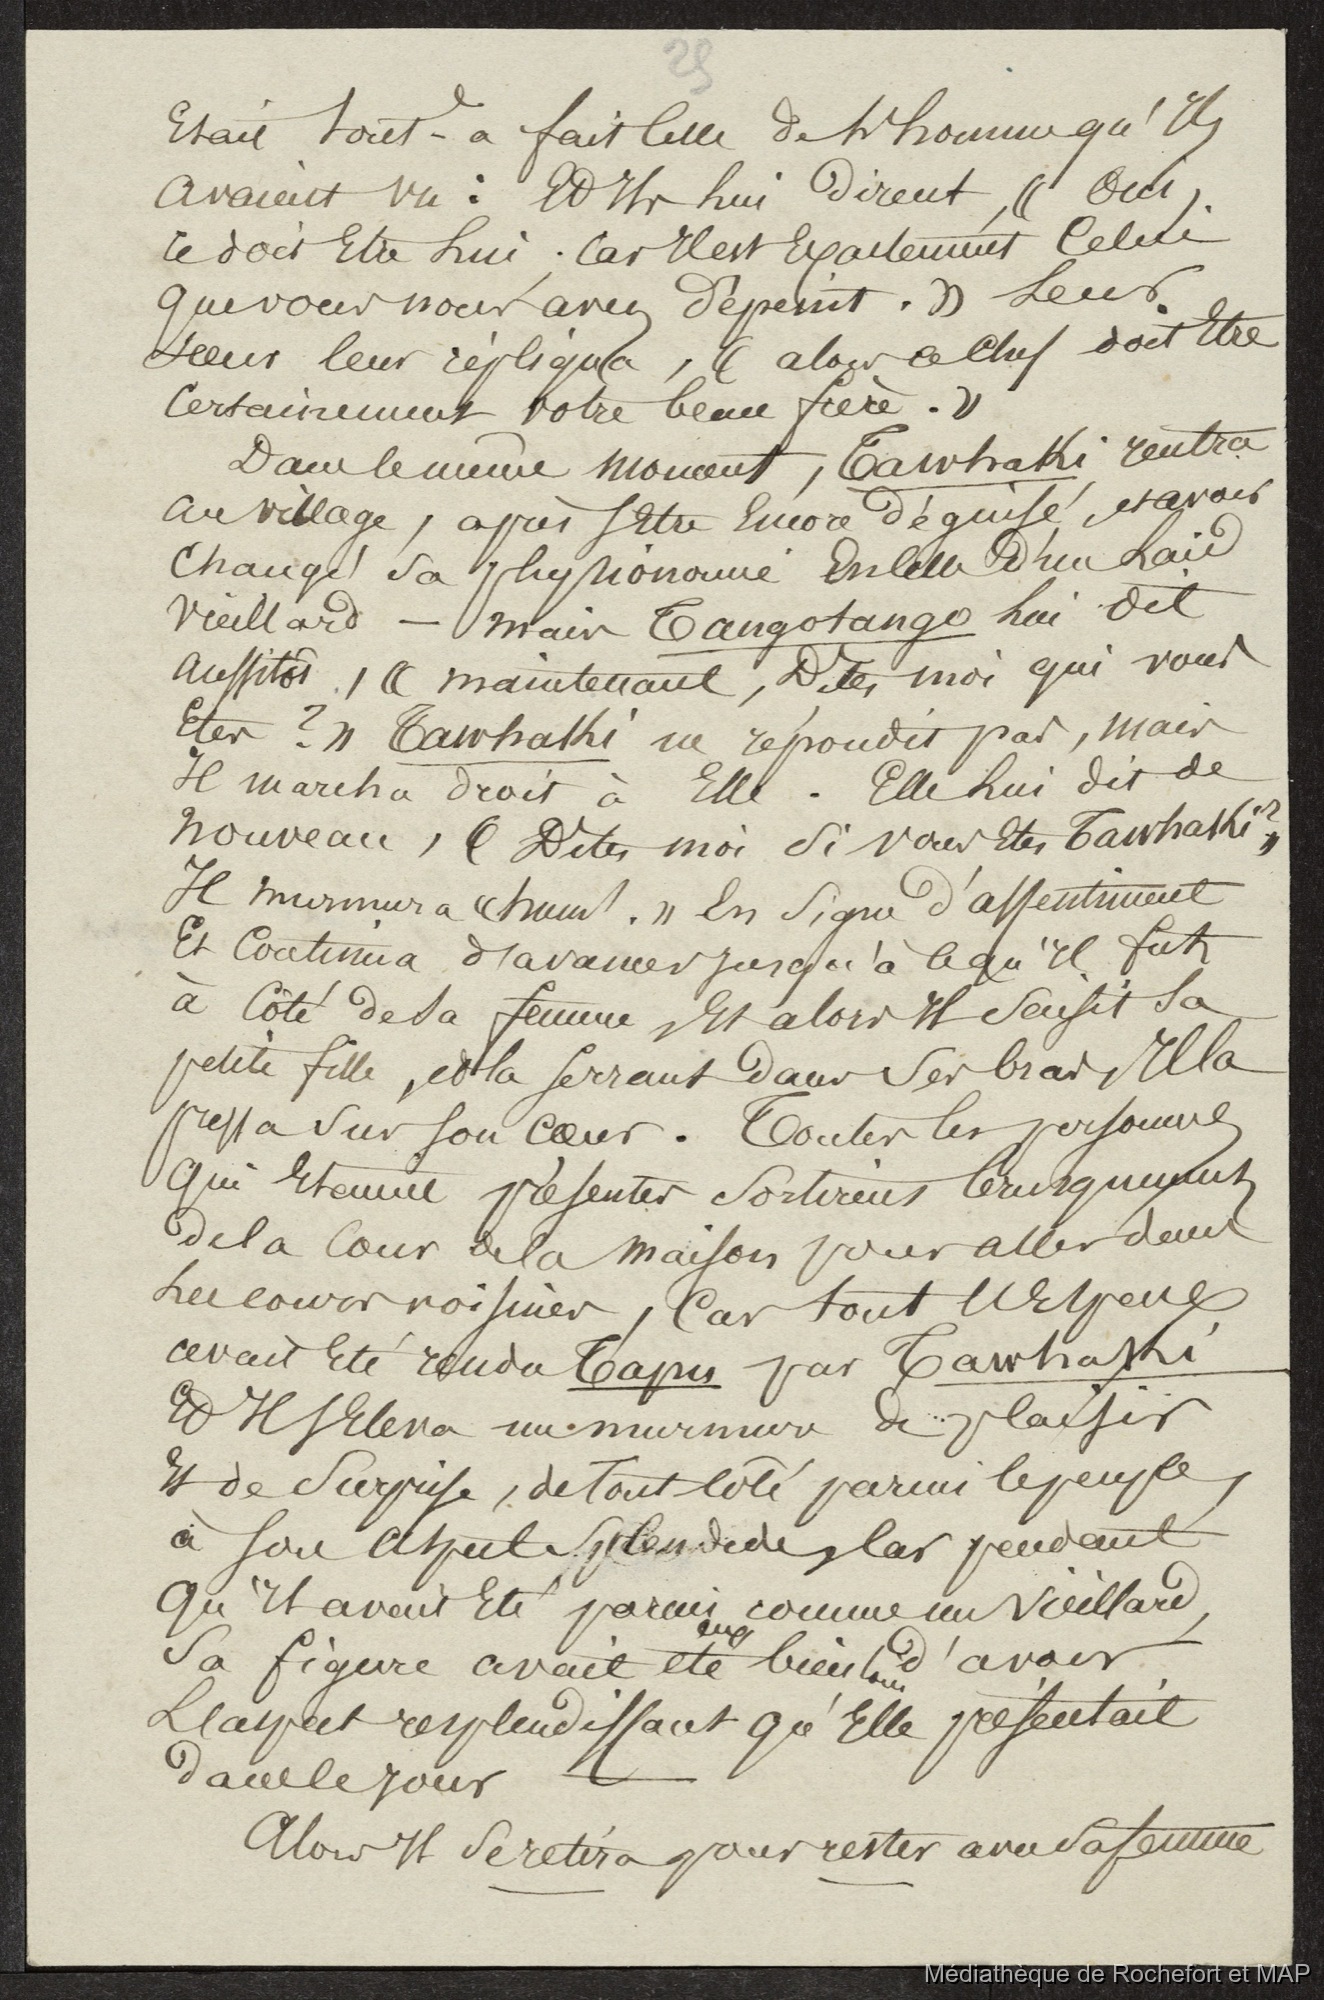 25
Etait tout-à fait celle de l'homme qu'Ils
avaient vu : Et Ils lui dirent, « Oui,
ce doit Etre lui, car Il est Exactement Celui
que vous nous avez dépeint. » Leur
Sœur leur répliqua, « alors ce Chef doit Etre
Certainement votre beau frère. »
Dans le même moment, Tawhaki rentra
au village, après s'Etre Encore déguisé, et avoir
Changé sa physionomie En celle d'un Laid
Vieillard — mais Tangotango lui dit
aussitôt, « maintenant, Dites moi qui vous
Etes ? » Tawhaki ne répondit pas, mais
Il marcha droit à Elle. Elle lui dit de
nouveau, « Dites moi si vous Etes Tawhaki ? »
Il murmura « hum ! » En signe d'assentiment
Et Continua d'avancer jusqu'à ce qu'Il fut
à Côté de sa femme, Et alors Il saisit sa
petite fille, et la serrant dans ses bras, Il la
pressa sur son Cœur. Toutes les personnes
qui Etaient présentes sortirent brusquement
de la Cour de la maison pour aller dans
les cours voisines, Car tout l'Espace
avait Eté rendu Tapu par Tawhaki
Et Il s'Eleva un murmure de plaisir
Et de Surprise, de Tout côté parmi le peuple,
à son aspect splendide, car pendant
qu'Il avait Eté parmi eux comme un Vieillard,
Sa figure avait été bien loin d'avoir
L'aspect resplendissant qu'Elle présentait
dans le jour —
Alors Il se retira pour rester avec sa femme
Médiathèque de Rochefort et MAP